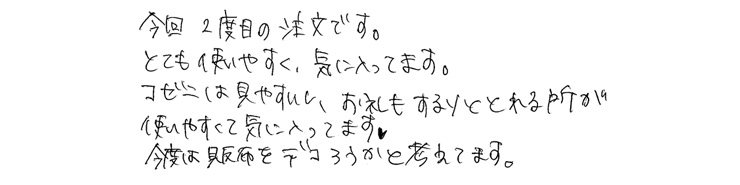 今回2度目の注文です。
とても使いやすく、気に入ってます。
コゼニは見やすいし、お札もするりととれる所が
使いやすくて気に入ってます♥
今度は財布をデコろうかと考えてます。